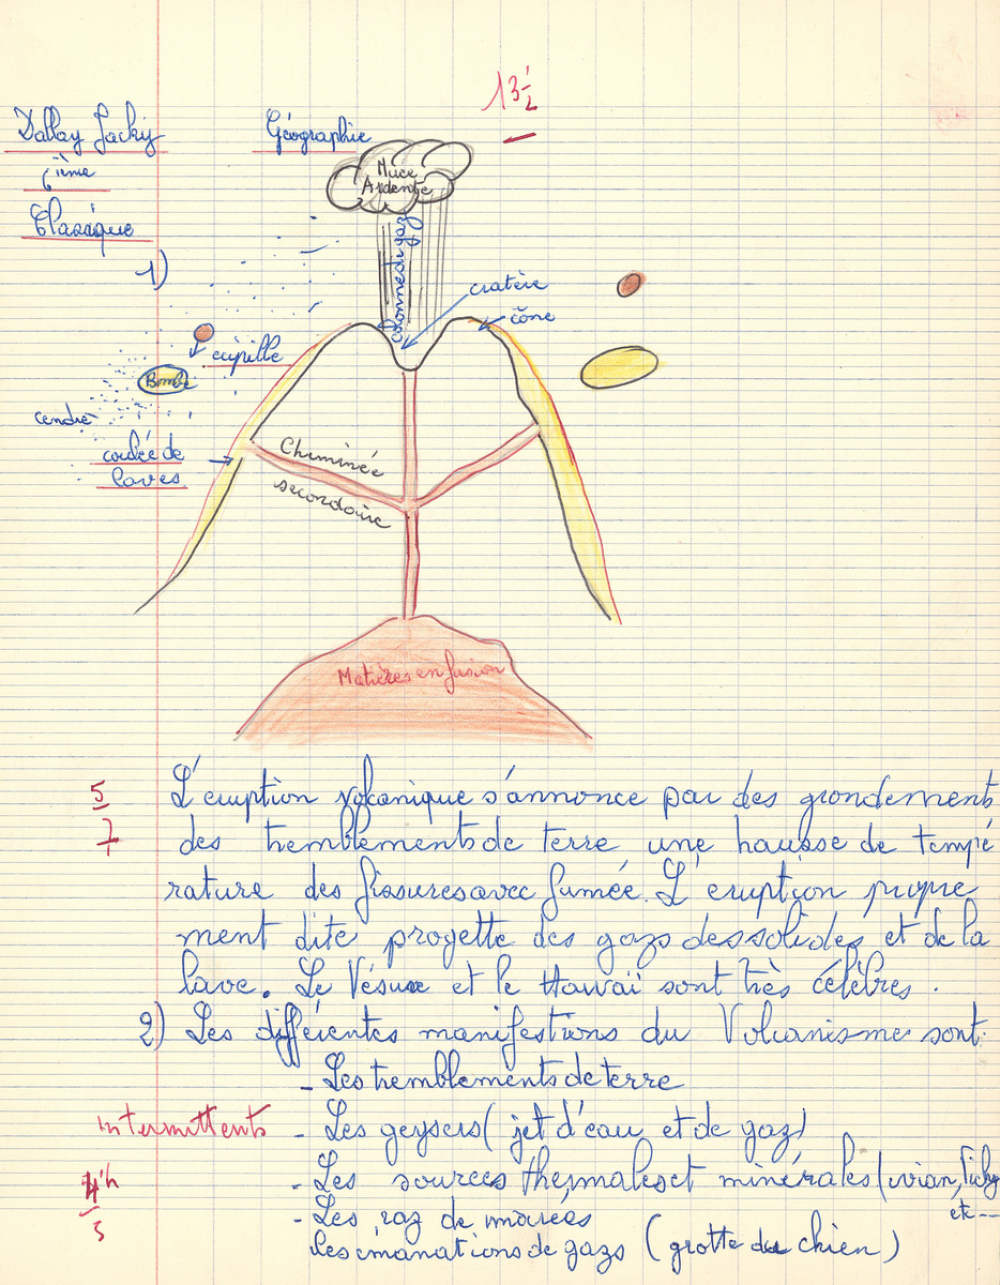 13 1/2
Dallay Jacky
Géographie
6ième
Classique
Nuée
Ardente
1)
Colonne de gaz
cratère
cône
lapille
Bombe
cendre
coulée de
laves
Cheminée
secondaire
Matières en fusion
5
7
L'eruption volcanique s'annonce par des grondements
des tremblements de terre une hausse de tempé
rature des fissures avec fumée. L'eruption propre
ment dite progette des gazs des solides et de la
lave. Le Vésuve et le Hawaï sont très célèbres.
2) Les différentes manifestions du Volcanisme sont:
- Les tremblements de terre
intermittents - Les geysers (jet d'eau et de gaz)
- Les sources thermales et minérales (evian, Vichy
etc--
- Les raz de marées
Les émanations de gazs (grotte du chien)
5